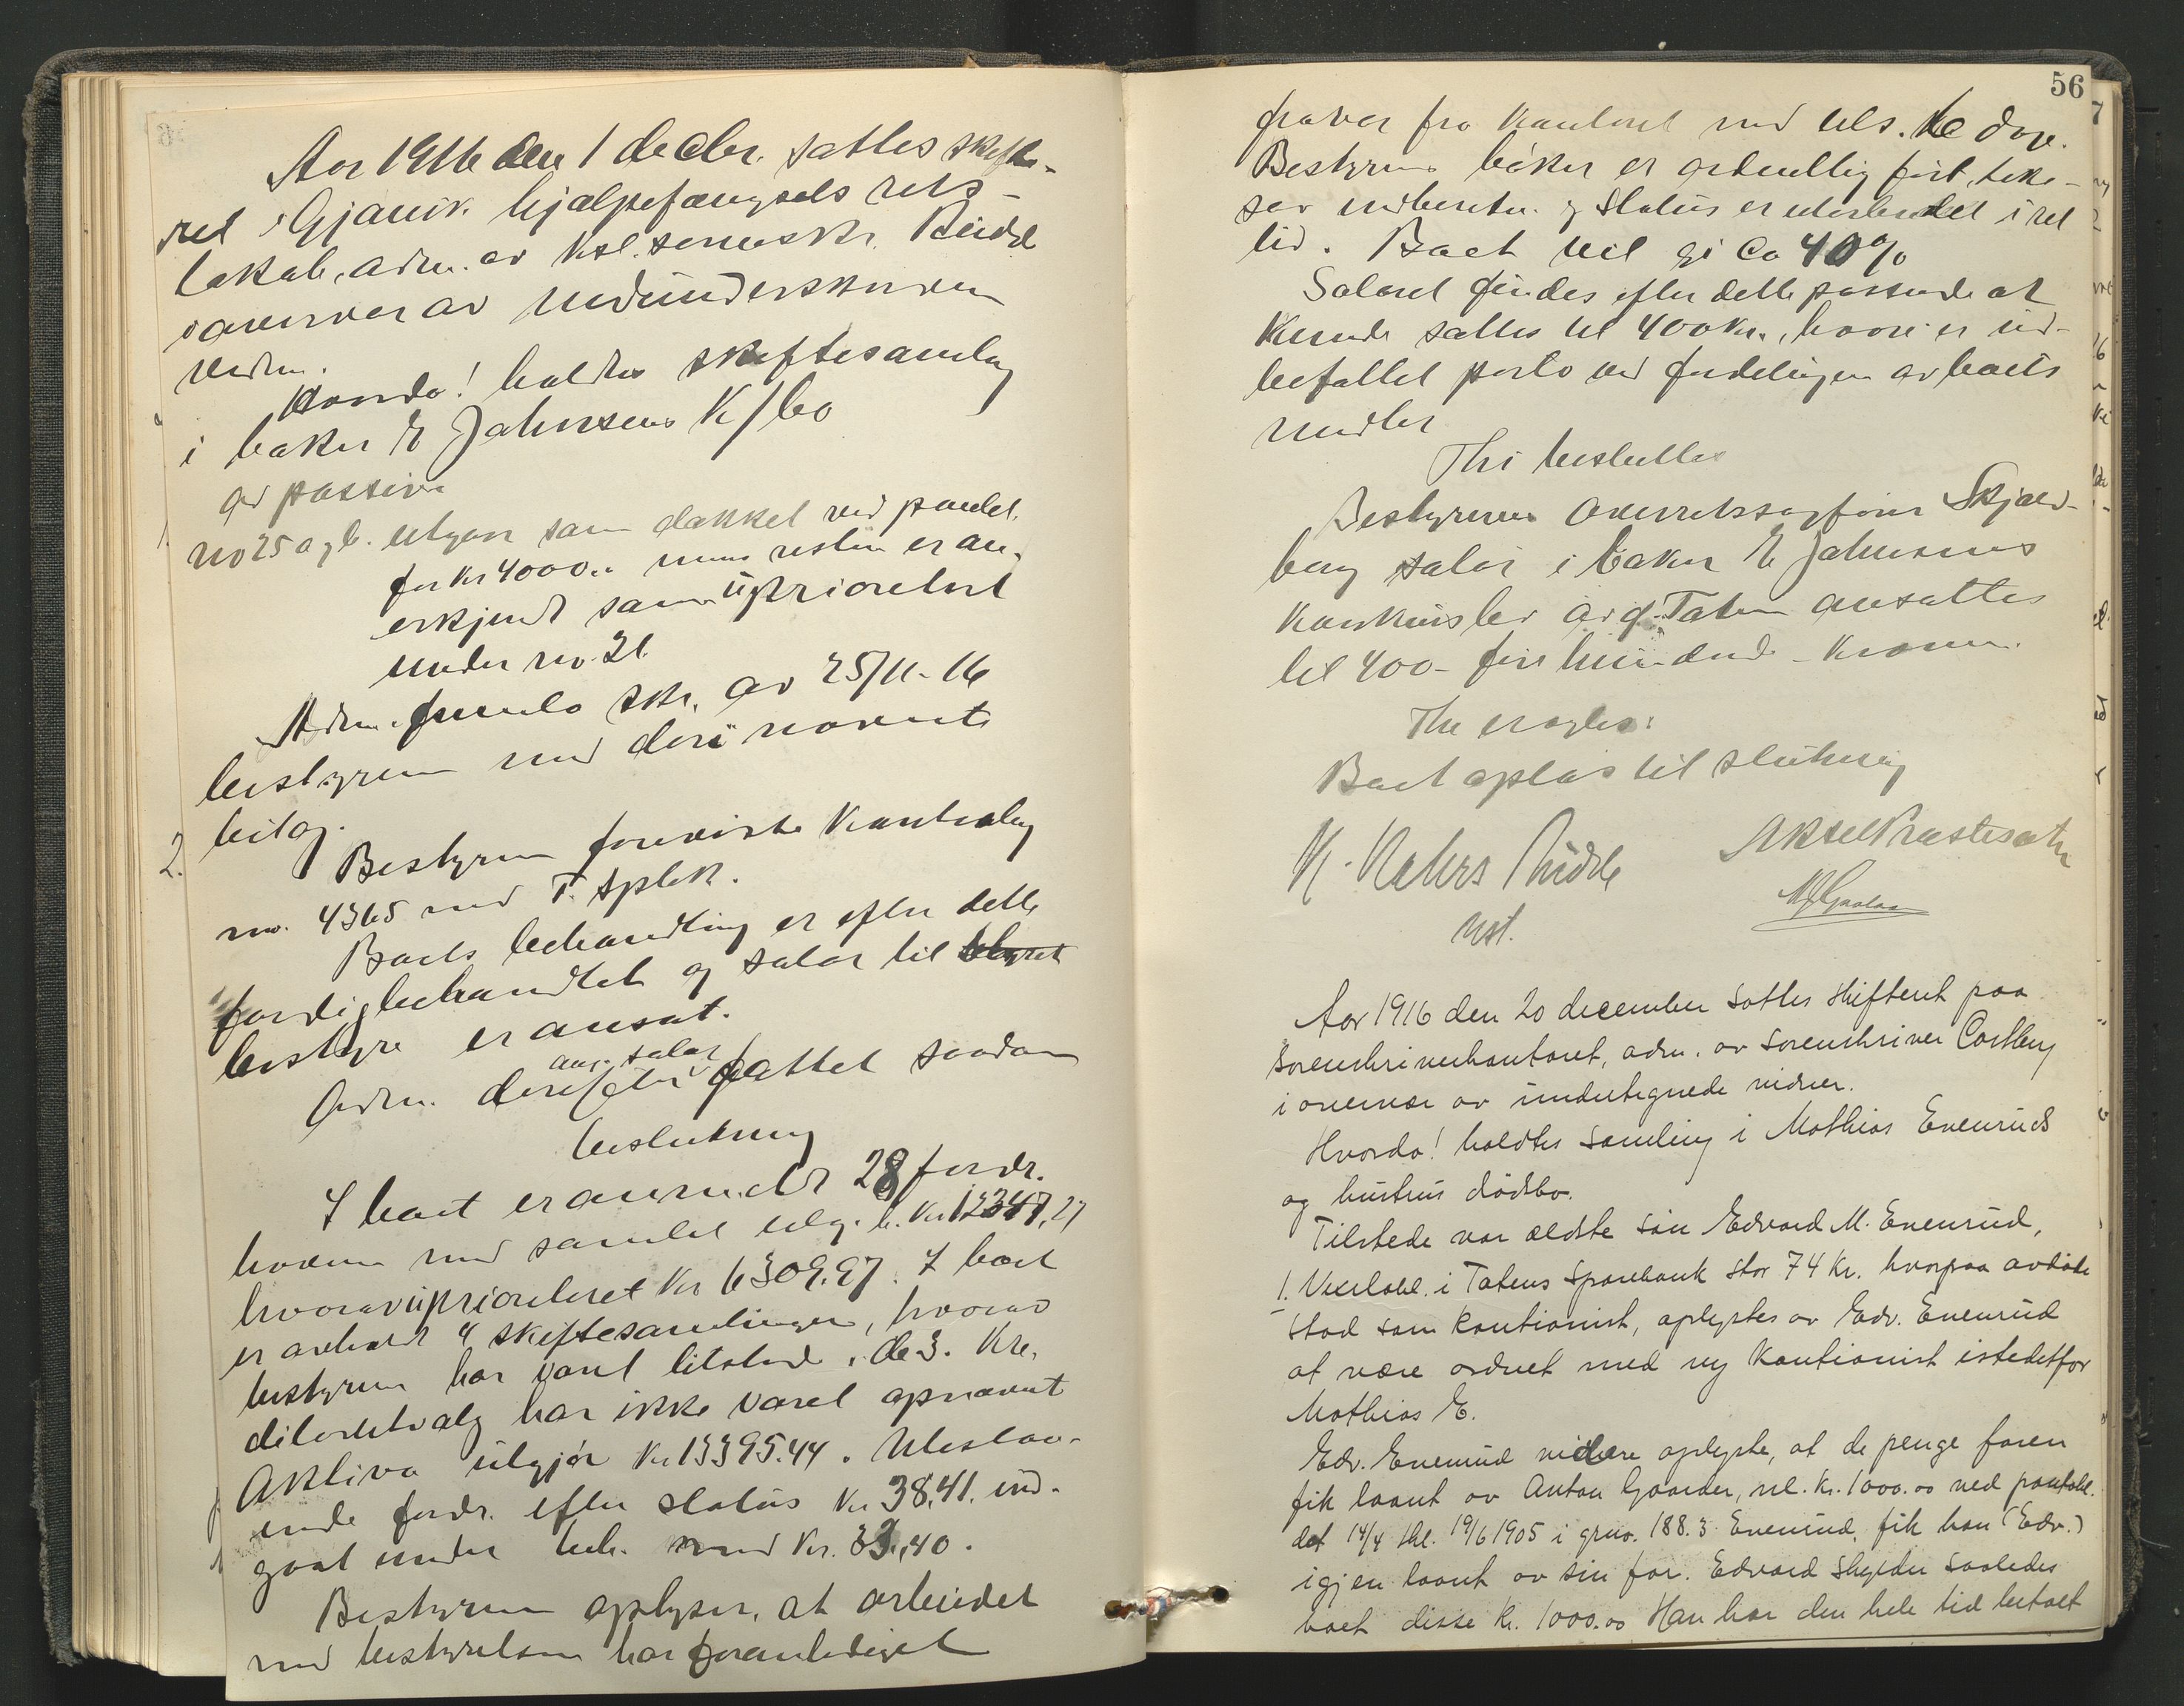 Aar 1916 den 1 decbr. sattes skifte-
ret i Gjøvik hjælpefængsels rets-
lokale, adm. av kst. sorenskr. Riddle
i overvær av medunderskrivn
vidner.
Hvorda! holdtes skiftesamling
i baker E Jahnsens K/bo
ad passiva
1.
No 25 a gb. utgaar som dækket ved pantet
for Kr 4000.. mens resten er an-
erkjendt som uprioritert
under no. 21
Adm. fremla skr. av 25/11-16
bestyreren med deri nævnte
bilag.
2.
Bestyreren foreviste kontrabog
no. 4365 med T. spbk.
Boets behandling er efter dette
færdigbehandlet og salær til
bestyre er ansat.
Adm. derefter ang. salær fattet saadan
beslutning
I boet er anmeldt 28 fordr.
haver med samlet utlg. b. Kr 12347,27
hvorav uprioriteret Kr 6309.97. I boet
er avholdt 4 skiftesamlinger, hvorav
bestyreren har været tilstede i de 3. Kre-
ditorutvalg har ikke været opnævnt
Aktiva utgjør Kr 13395.44. Utestaa-
ende fordr. efter status Kr 3841. ind-
gaat under beh. med Kr. 39,40.
Bestyreren oplyser, at arbeidet
med bestyrelsen har foranlediget
56
fravær fra kontoret med tils. 16 dage.
Bestyrerens bøker er ordentlig ført, like-
saa indberetn. og status er utarbeidet i ret
tid. Boet vil gi Ca 40%
Salæret findes efter dette passende at
kunde sættes til 400 Kr., hvori er ind-
befattet porto ved fordelingen av boets
midler
Thi besluttes
Bestyreren Overretssagfører Skjæd-
berg salær i baker E Jahnsens
konkursbo Ø. Toten ansættes
til 400 - fire hundrede - kroner.
Thi eragtes:
Boet optas til slutning
K. Nahrs Riddle
kst.
Aksel Prestesæter
Aar 1916 den 20 december sattes skifteret paa
sorenskriverkontoret, adm. av sorenskriver Castberg
i overvær av undertegnede vidner.
Hvorda! holdtes samling i Mathias Evenruds
og hustrus dødsbo.
Tilstede var ældste søn Edvard M. Evenrud,
1. Vexelobl. i Totens Sparebank stor 74 Kr. hvorpaa avdøde
stod som kautionist, oplystes av Edv. Evenrud
at være ordnet med ny kautionist istedetfor
Mathias E.
Edv. Evenrud videre oplyste, at de penge faren
fik laant av Anton Gaarder, nl. Kr. 1000.00 ved pantobl.
dat 14/4 thl. 19/6 1905 i grno. 188.3 Evenrud, fik han (Edv.)
igjen laant av sin far. Edvard skylder saaledes
boet disse Kr. 1000.00 Han har den hele tid betalt